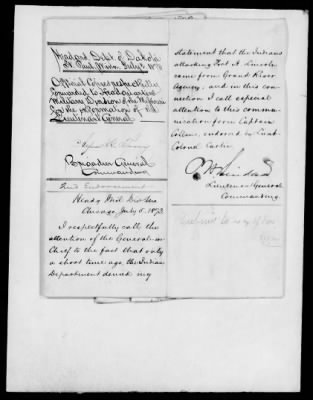 Headqrs. Dept. of Dakota
St. Paul, Minn. July 3, 1873
Official Copies respectfully
forwarded to Headquarters
Military Division of the Missouri
for the information of the
Lieutenant General
Alfred H. Terry
Brigadier General
Commanding
2nd Endorsement
Hdqrs Mil Div Mo
Chicago, July 5, 1873.
I respectfully call the
attention of the General-in-
Chief to the fact that only
a short time ago the Indian
Department denied my
statement that the Indians
attacking Fort A. Lincoln
came from Grand River
Agency, and in this con-
nection I call especial
attention to this commu-
nication from Captain
Collins, endorsed by Lieut
Colonel Custer
P. H. Sheridan
Lieutenant General
Commanding.